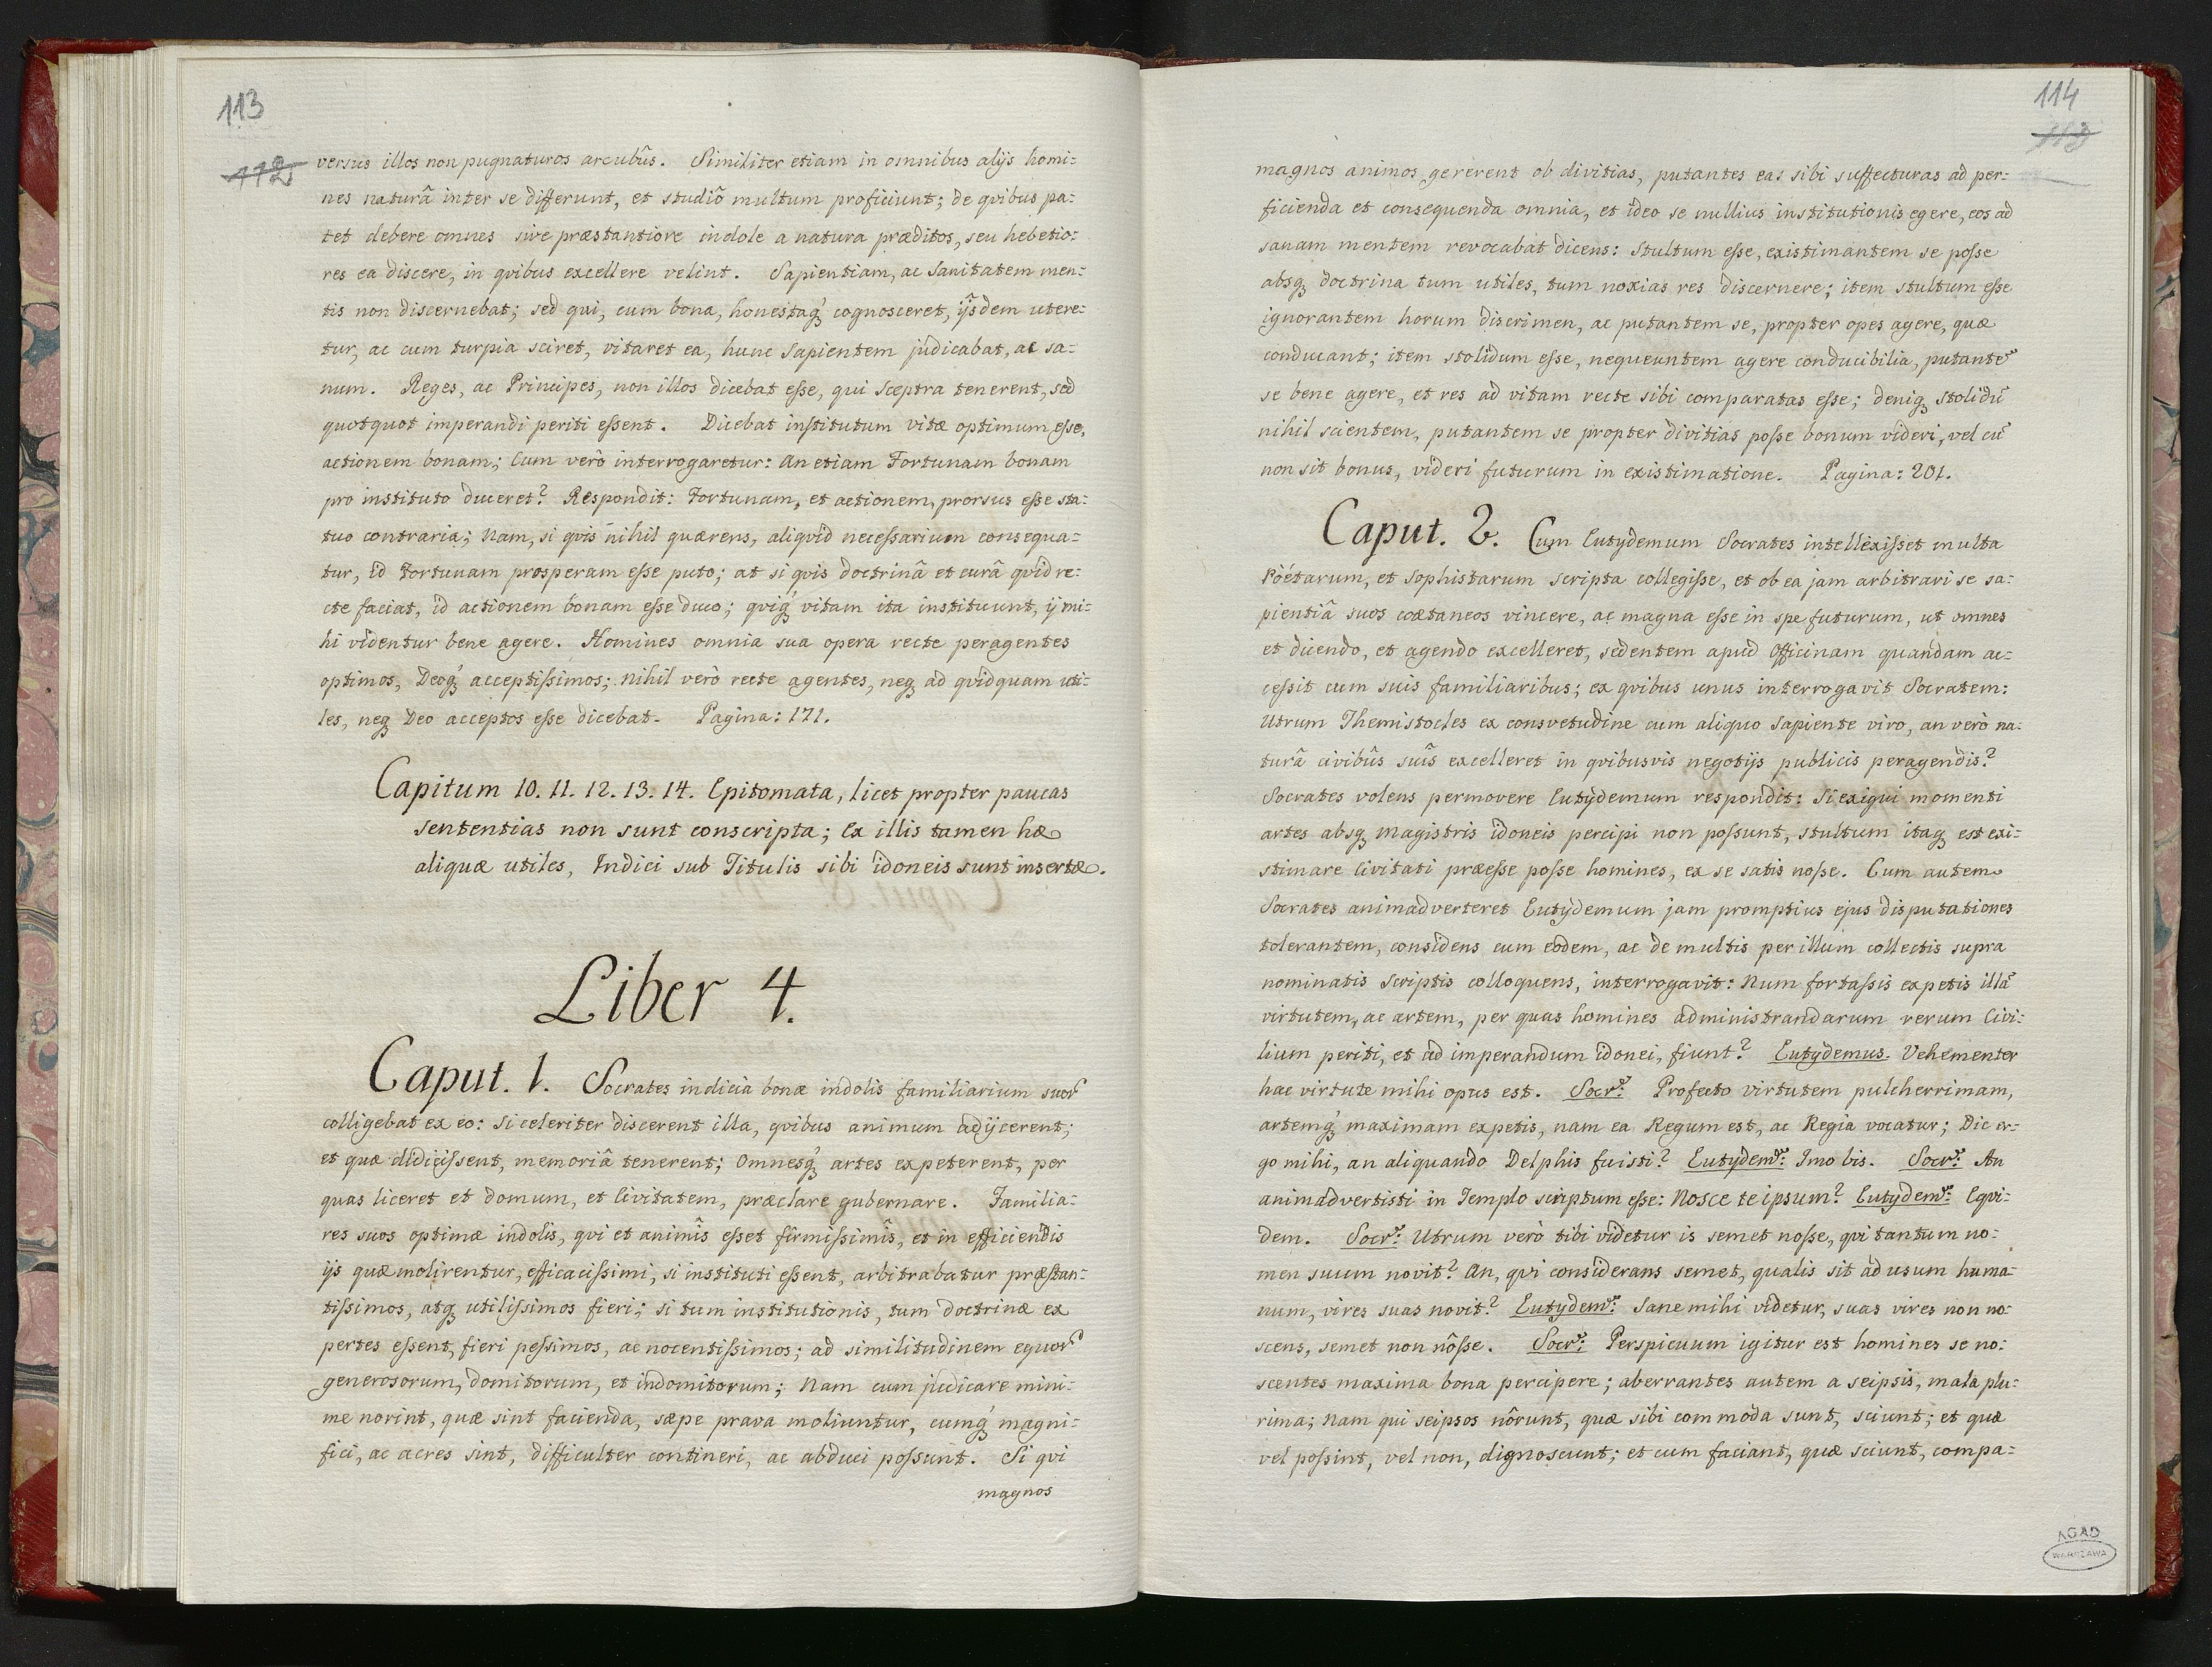 113
112
versus illos non pugnaturos arcubûs. Similiter etiam in omnibus alijs homi=
nes naturâ inter se differunt, et studiô multum proficiunt; de qvibus pa=
tet debere omnes sive præstantiore indole a natura præditos, seu hebetio=
res ea discere, in qvibus excellere velint. Sapientiam, ac Sanitatem men=
tis non discernebat; sed qui, cum bona, honestaq́; cognosceret, ijsdem utere=
tur, ac cum turpia sciret, vitaret ea, hunc Sapientem judicabat, ac sa=
num. Reges, ac Principes, non illos dicebat esse, qui Sceptra tenerent, sed
quotquot imperandi periti essent. Dicebat institutum vitæ optimum esse,
actionem bonam; Cum verò interrogaretur: An etiam Fortunam bonam
pro instituto duceret? Respondit: Fortunam, et actionem, prorsus esse sta=
tuo contraria; Nam, si qvis nihil quærens, aliqvid necessarium consequa=
tur, id Fortunam prosperam esse puto; at si qvis doctrinâ et curâ qvid re=
cte faciat, id actionem bonam esse duco; qviq́; vitam ita instituunt, ij mi=
hi videntur bene agere. Homines omnia sua opera recte peragentes
optimos, Deoq́; acceptissimos; Nihil verò recte agentes, neq; ad qvidquam uti=
les, neq; Deo acceptos esse dicebat. Pagina: 171.
Capitum 10. 11. 12. 13. 14. Epitomata, licet propter paucas
sententias non sunt conscripta; Ex illis tamen hæ
aliquæ utiles, Indici sub Titulis sibi idoneis sunt insertæ.
Liber 4.
Caput. 1. Socrates indicia bonæ indolis familiarium suor̃
colligebat ex eo: Si celeriter discerent illa, qvibus animum adijcerent;
et quæ didicissent, memoriâ tenerent; Omnesq́; artes expeterent, per
quas liceret et domum, et Civitatem, præclare gubernare. Familia=
res suos optimæ indolis, qvi et animîs esset firmissimîs, et in efficiendis
ijs quæ molirentur, efficacissimi, si instituti essent, arbitrabatur præstan=
tissimos, atq; utilissimos fieri; si tum institutionis, tum doctrinæ ex
pertes essent, fieri pessimos, ac nocentissimos; ad similitudinem equor̃
generosorum, domitorum, et indomitorum; Nam cum judicare mini=
me norint, quæ sint facienda, sæpe prava moliuntur, cumq́; magni=
fici, ac acres sint, difficulter contineri, ac abduci possunt. Si qvi
magnos
114
113
magnos animos gererent ob divitias, putantes eas sibi suffecturas ad per=
ficienda et consequenda omnia, et ideo se nullius institutionis egere, eos ad
sanam mentem revocabat dicens: Stultum esse, existimantem se posse
absq; doctrina tum utiles, tum noxias res discernere; item stultum esse
ignorantem horum discrimen, ac putantem se, propter opes agere, quæ
conducant; item stolidum esse, nequeuntem agere conducibilia, putantẽ
se bene agere, et res ad vitam recte sibi comparatas esse; deniq; stolidũ
nihil scientem, putantem se propter divitias posse bonum videri, vel cũ
non sit bonus, videri futurum in existimatione. Pagina: 201.
Caput. 2. Cum Eutydemum Socrates intellexisset multa
Poétarum, et Sophistarum scripta collegisse, et ob ea jam arbitrari se sa=
pientiâ suos coætaneos vincere, ac magna esse in spe futurum, ut omnes
et dicendo, et agendo excelleret, sedentem apud Officinam quandam ac=
cessit cum suis familiaribus; ex qvibus unus interrogavit Socratem:
Utrum Themistocles ex consvetudine cum aliquo Sapiente viro, an verò na=
turâ civibûs suîs excelleret in qvibusvis negotijs publicis peragendis?
Socrates volens permovere Eutydemum respondit: Si exigui momenti
artes absq; Magistris idoneis percipi non possunt, stultum itaq; est exi=
stimare Civitati præesse posse homines, ex se satis nosse. Cum autem
Socrates animadverteret Eutydemum jam promptius ejus disputationes
tolerantem, considens cum eodem, ac de multis per illum collectis supra
nominatis scriptis colloquens, interrogavit: Num fortassis expetis illã
virtutem, ac artem, per quas homines administrandarum rerum Civi=
lium periti, et ad imperandum idonei, fiunt? Eutydemus. Vehementer
hac virtute mihi opus est. Socr: Profecto virtutem pulcherrimam,
artemq́; maximam expetis, nam ea Regum est, ac Regia vocatur; Dic er=
go mihi, an aliquando Delphis fuisti? Eutydem: Imo bis. Socr: An
animadvertisti in Templo scriptum esse: Nosce te ipsum? Eutydem: Eqvi=
dem. Socr: Utrum verò tibi videtur is semet nosse, qvi tantum no=
men suum novit? An, qvi considerans semet, qualis sit ad usum huma=
num, vires suas novit? Eutydem: Sane mihi videtur, suas vires non no=
scens, semet non nôsse. Socr: Perspicuum igitur est homines se no=
scentes maxima bona percipere; aberrantes autem a seipsis, mala plu=
rima; Nam qui seipsos nôrunt, quæ sibi commoda sunt, sciunt; et quæ
vel possint, vel non, dignoscunt; et cum faciant, quæ sciunt, compa=
AGAD
WARSZAWA